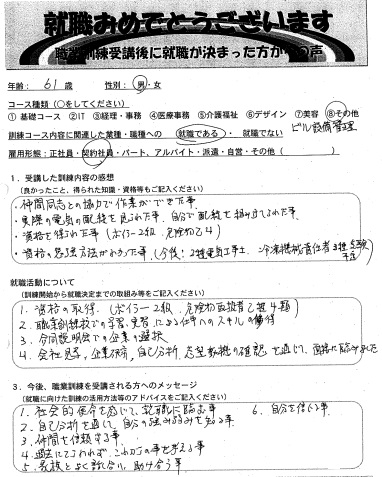 就職おめでとうございます
職業訓練受講後に就職が決まった方からの声
年齢: 61 歳 性別: 男・女
コース種類 (○をしてください)
① 基礎コース ②IT ③経理・事務 ④医療事務 ⑤介護福祉 ⑥デザイン ⑦美容 ⑧その他
訓練コース内容に関連した業種・職種への 就職である・ 就職でない ビル設備管理
雇用形態:正社員・契約社員・パート、アルバイト・派遣・自営・その他 ( )
1. 受講した訓練内容の感想
(良かったこと、得られた知識・資格等もご記入ください)
・仲間同志との協力で作業ができた事
・実際の電気の配線を見られた事、自分で配線を組み立てられた事
・資格を得られた事 (ボイラー2級、危険物乙4)
・資格の勉強方法がわかった事、(今後! 2種電気工事士、冷凍機械責任者3種
就職活動について
(訓練開始から就職決定までの取組み等をご記入ください)
1. 資格の取得、(ボイラー2級、危険物取扱者乙種4類)
2. 職業訓練校での学習、実習による仕事へのスキルの習得
3. 合同説明会での企業の選択
4. 会社見学、企業研究、自己分析、志望動機の確認を通じて、面接に臨みました
3. 今後、職業訓練を受講される方へのメッセージ
(就職に向けた訓練の活用方法等のアドバイスをご記入ください)
1. 社会的使命を感じて、就職に臨む事 6. 自分を信じる事
2. 自己分析を通して、自分の強み弱みを知る事
3. 仲間を信頼する事
4. 過去にとらわれず、これからの事を考える事
5. 家族とよく話し合い、助け合う事